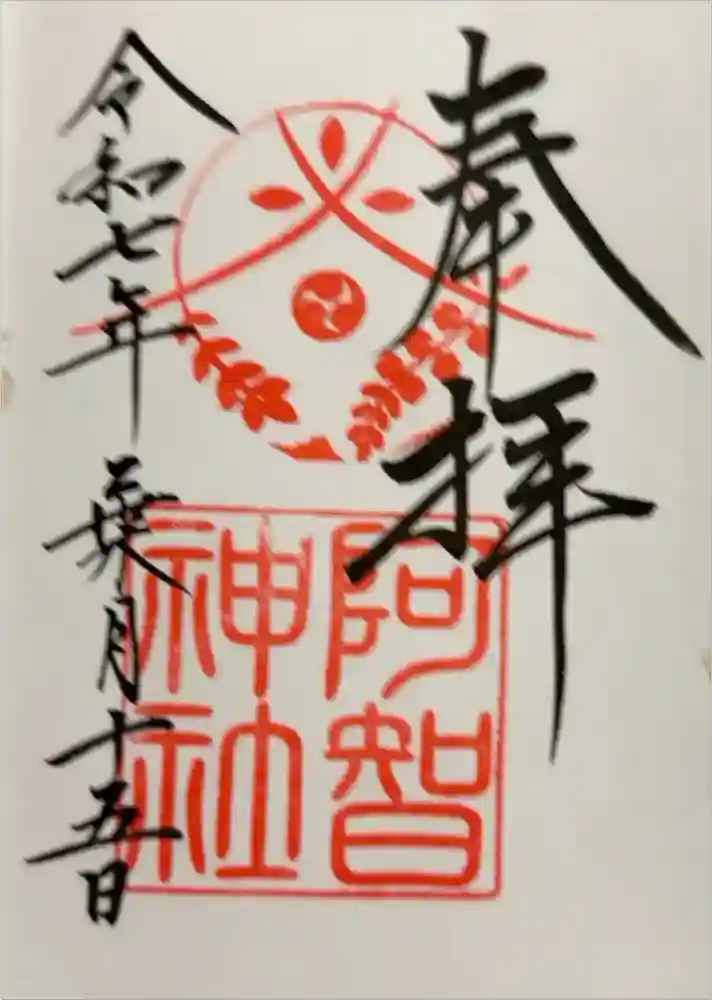 奉拝
阿智神社
令和七年 葉月十五日